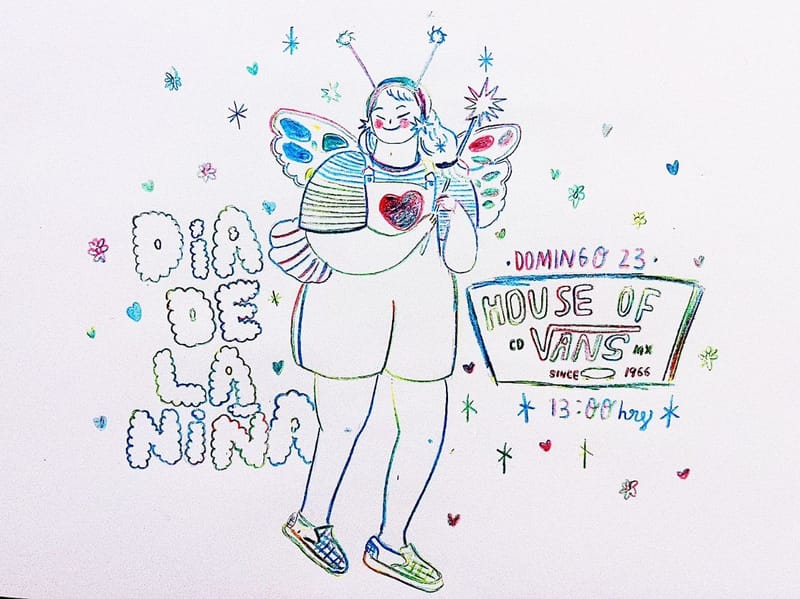 DiA
DE
LA
NiÑA
·DOMINGO 23·
HOUSE OF
CD VANS MX
SINCE 1966
13:00hrs